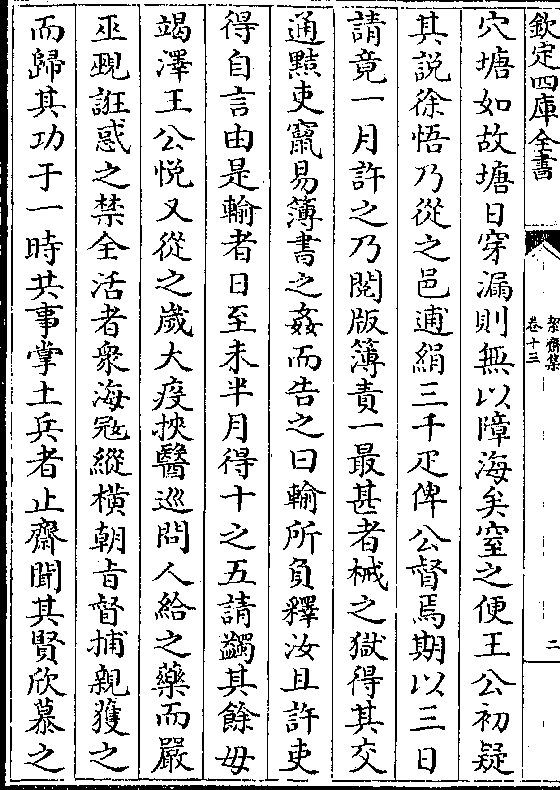 欽定四庫全書
絜齋集
卷十三
二
穴塘如故塘日穿漏則無以障海矣窒之便王公初疑
其説徐悟乃從之邑逋絹三千疋俾公督焉期以三日
請竟一月許之乃閲版簿責一最甚者械之獄得其交
通黠吏竄易簿書之姦而告之曰輸所負釋汝且許吏
得自言由是輸者日至未半月得十之五請蠲其餘毋
竭澤王公悦又從之嵗大疫挾醫巡問人給之藥而嚴
巫覡誑惑之禁全活者衆海冦縱横朝㫖督捕親獲之
而歸其功于一時共事掌土兵者止齋聞其賢欣慕之